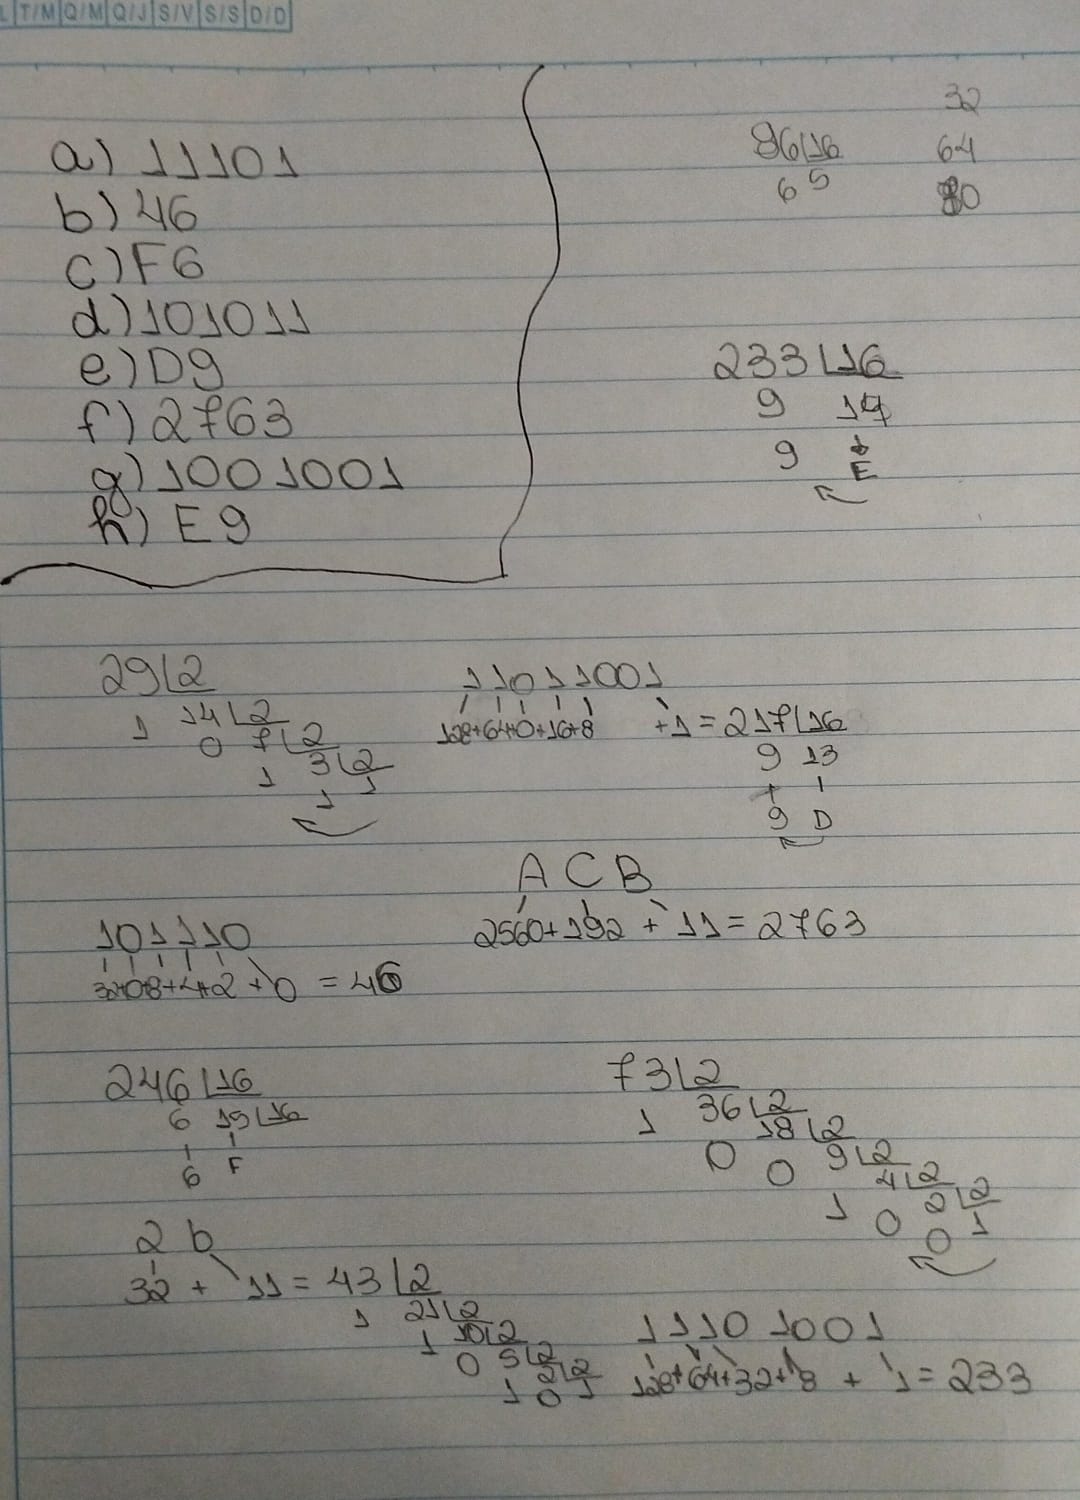 T/M Q/M Q/J S/V S/S D/D
a) 11101
b) 46
c) F6
d) 101011
e) D9
f) 2763
g) 1001001
h) E9
32
96 16 64
6 5 80
233 16
9 14
9 E
29 2
1 14 2
0 7 2
1 3 2
1 1
11011001
128+64+0+16+8 +1 = 217 16
9 13
9 D
A C B
2560+192 + 11 = 2763
101110
32+0+8+4+2 + 0 = 46
246 16
6 15 16
6 F
73 2
1 36 2
0 18 2
0 9 2
1 4 2
0 2 2
0 1
2 b
32 + 11 = 43 2
1 21 2
1 10 2
0 5 2
1 2 2
0 1
1110 1001
128+64+32+8 + 1 = 233